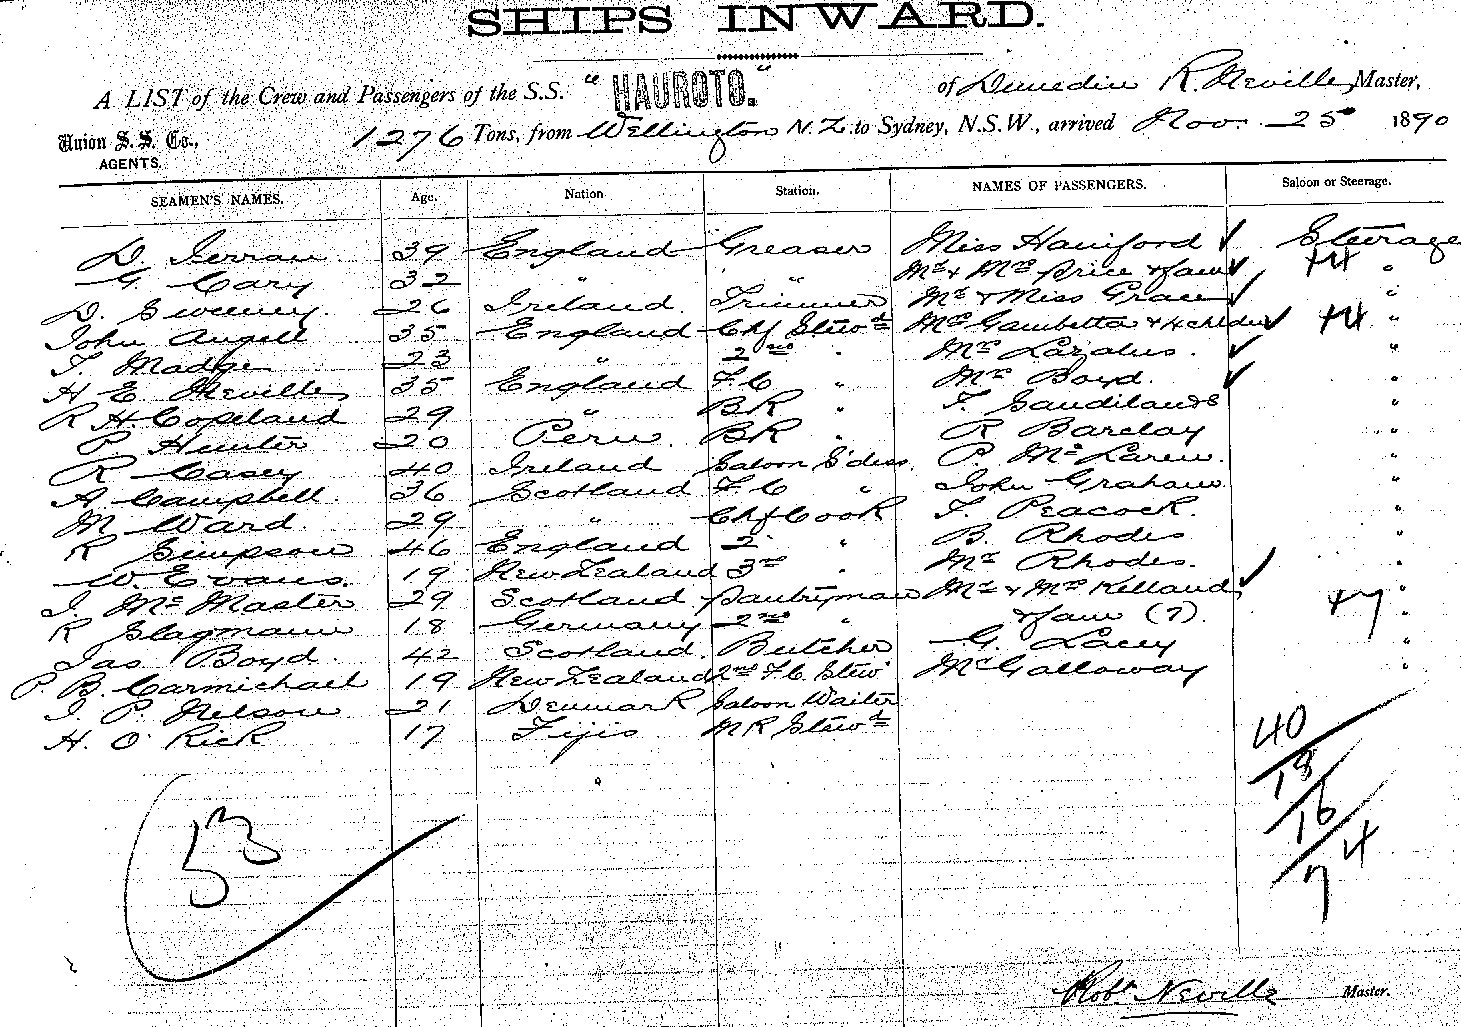 SHIPS INWARD.
A LIST of the Crew and Passengers of the S.S. "HAUROTO." of Dunedin R. Neville, Master,
Union S. S. Co., AGENTS. 1276 Tons, from Wellington N.Z. to Sydney, N.S.W., arrived Nov. 25 1890
SEAMEN'S NAMES. Age. Nation Station. NAMES OF PASSENGERS. Saloon or Steerage.
D. 39 England Greaser Miss Steerage
G. Cary 32 " " Mr & Mrs Price & fam +4 "
D. Sweeney. 26 Ireland. Trimmer Mr & Miss Grace "
John Angell 35 England Chf Stewd Mrs Gambetta & 4 children +4 "
T. Madge 23 " 2nd " Mrs Lazarus. "
H E. Neville 35 England F.C " Mrs Boyd. "
R H. Copeland 29 " BK " T. Sandilands "
P Hunter 20 Peru. BK " R Barclay "
R Casey 40 Ireland Saloon S'dess. P. McLaren. "
A Campbell. 36 Scotland F.C " John Graham "
M Ward. 29 " Chf Cook T. Peacock. "
R Simpson 46 England 2 " B. Rhodes "
W. Evans. 19 New Zealand 3rd " Mr Rhodes. "
J. McMaster 29 Scotland Pantryman Mr & Mrs Kelland, "
R Slagmann 18 Germany 2nd " & fam (7). +7 "
Jas Boyd. 42 Scotland. Butcher G. Lacey "
P. B. Carmichael 19 New Zealand 2nd F.C Stew McGalloway "
J. P. Nelson 21 Denmark Saloon Waiter
H. O. Rick 17 Fijis MR Stewd
40
18
16
74
53
Robt Neville Master.